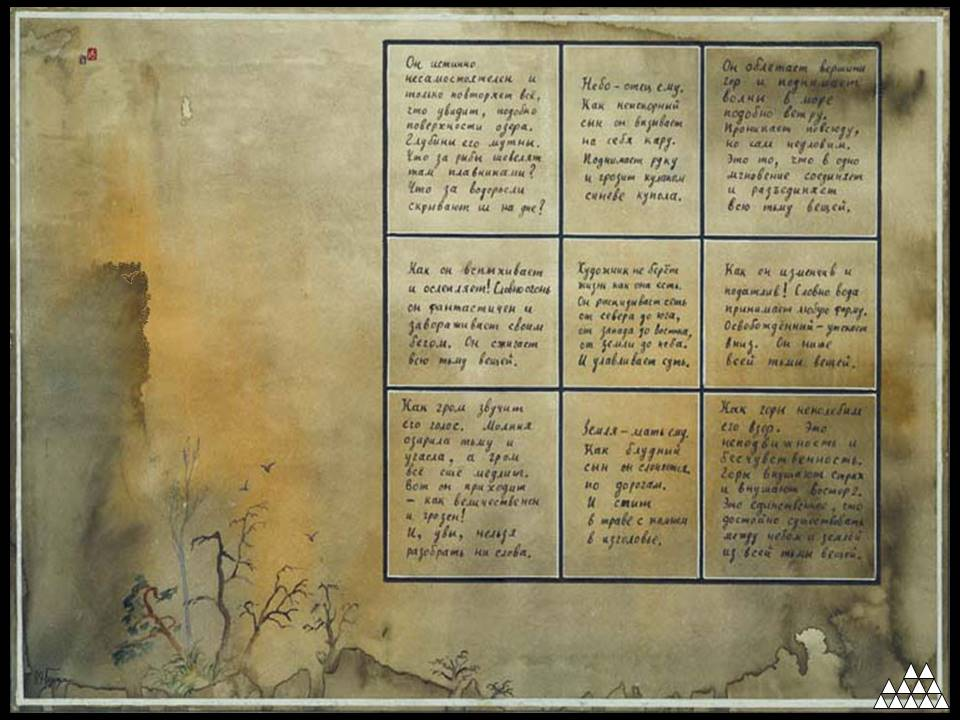 Он истинно
несамостоятелен и
только повторяет всё,
что увидит, подобно
поверхности озера.
Глубины его мутны.
Что за рыбы шевелят
там плавниками?
Что за водоросли
скрывают ил на дне?
Небо – отец ему.
Как непокорный
сын он вызывает
на себя кару.
Поднимает руку
и грозит кулаком
синеве купола.
Он облетает вершины
гор и поднимает
волны в море
подобно ветру.
Проникает повсюду,
но сам неуловим.
Это то, что в одно
мгновение соединяет
и разъединяет
всю тьму вещей.
Как он вспыхивает
и ослепляет! Словно огонь
он фантастичен и
завораживает своим
бегом. Он сжигает
всю тьму вещей.
Художник не берёт
жизнь как она есть.
Он раскидывает сеть
от севера до юга,
от запада до востока,
от земли до неба.
И улавливает суть.
Как он изменчив и
податлив! Словно вода
принимает любую форму.
Освобождённый – утекает
вниз. Он ниже
всей тьмы вещей.
Как гром звучит
его голос. Молния
озарила тьму и
угасла, а гром
всё ещё медлит.
Вот он приходит
– как величественен
и грозен!
И, увы, нельзя
разобрать ни слова.
Земля – мать ему.
Как блудный
сын он слоняется
по дорогам.
И спит
в траве с камнем
в изголовье.
Как горы непоколебим
его взор. Это
неподвижность и
бесчувственность.
Горы внушают страх
и внушают восторг.
Это единственное, что
достойно существовать
между небом и землёй
из всей тьмы вещей.